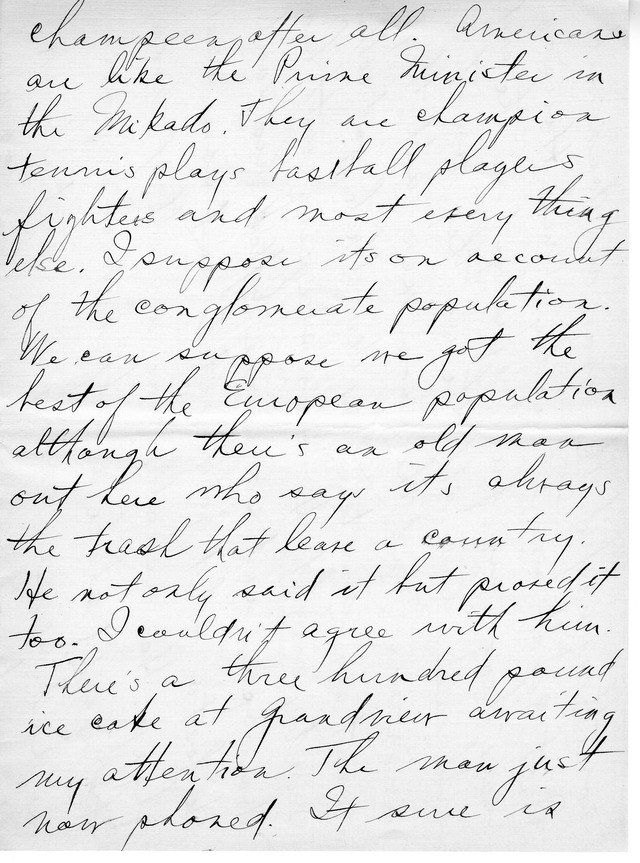 champeen after all. Americans
are like the Prime Minister in
the Mikado. They are champion
tennis plays baseball players
fighters and most every thing
else. I suppose its on account
of the conglomerate population.
We can suppose we got the
best of the European population
although there's an old man
out here who says its always
the trash that leave a country.
He not only said it but proved it
too. I couldn't agree with him.
There's a three hundred pound
ice cake at Grandview awaiting
my attention. The man just
now phoned. It sure is